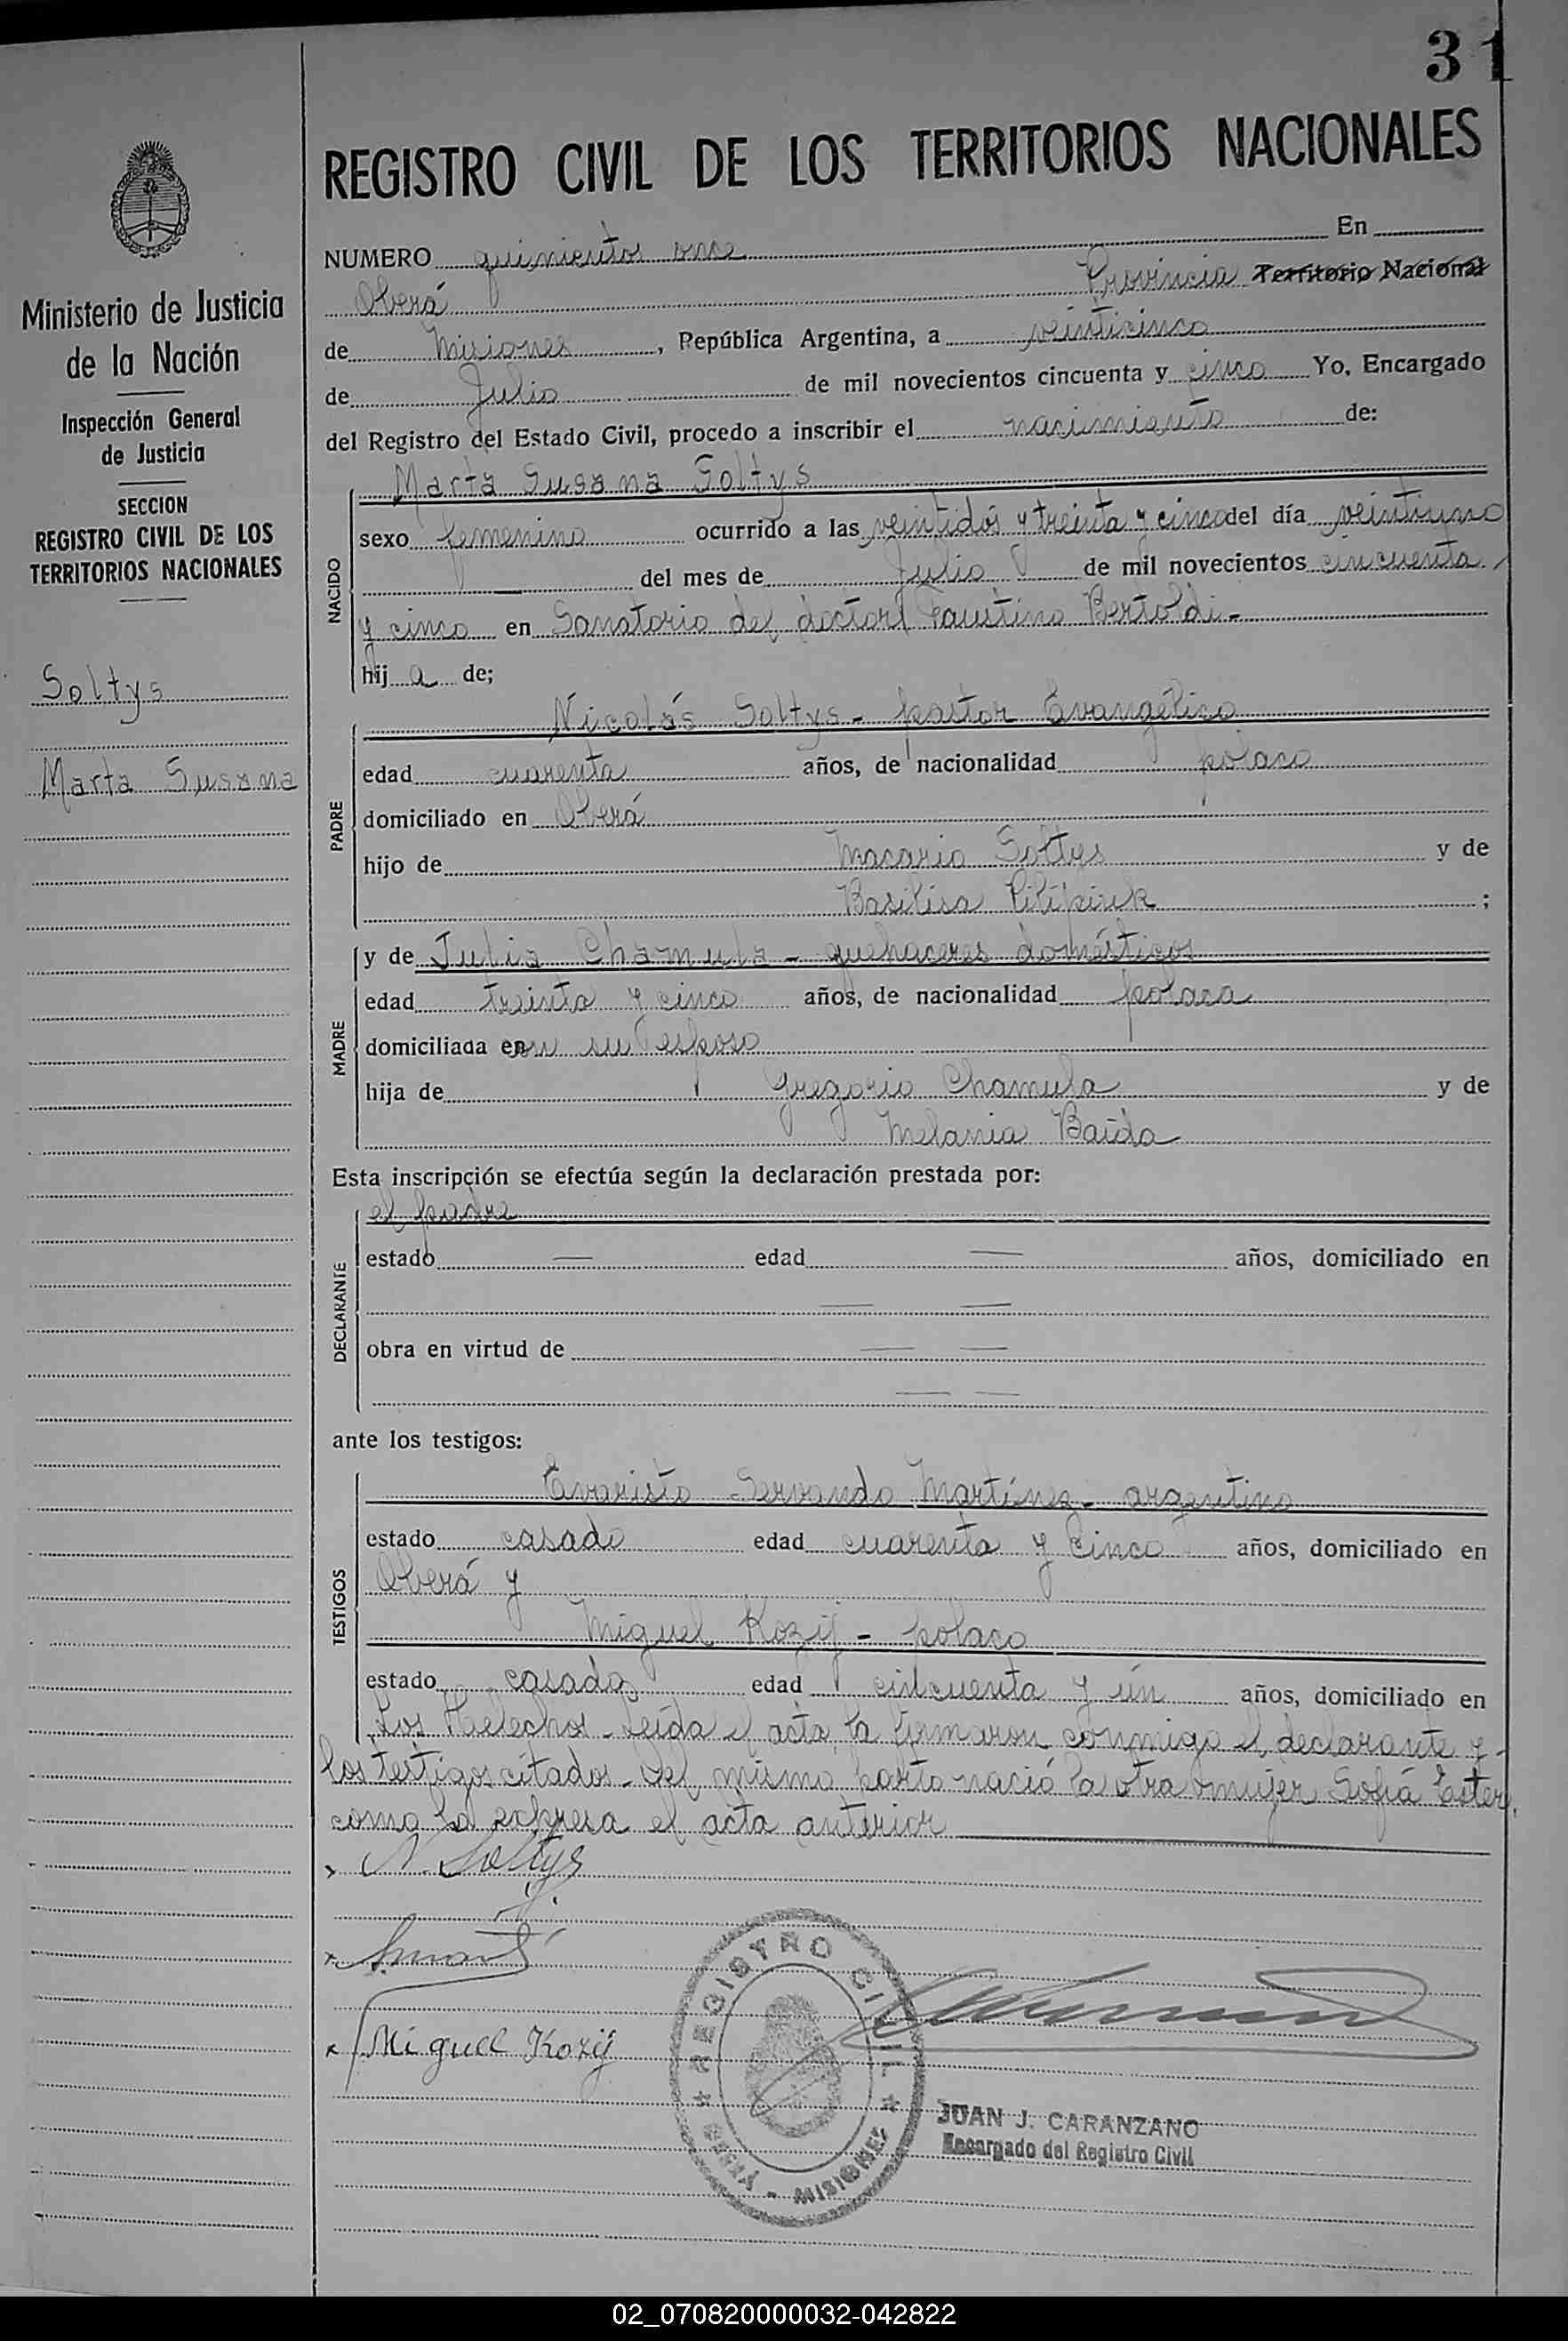 31
REGISTRO CIVIL DE LOS TERRITORIOS NACIONALES
Ministerio de Justicia
de la Nación
Inspección General
de Justicia
SECCION
REGISTRO CIVIL DE LOS
TERRITORIOS NACIONALES
Soltys
Marta Susana
NUMERO quinientos once En
Oberá Provincia Territorio Nacional
de Misiones, República Argentina, a veinticinco
de Julio de mil novecientos cincuenta y cinco Yo, Encargado
del Registro del Estado Civil, procedo a inscribir el nacimiento de:
NACIDO
Marta Susana Soltys
sexo femenino ocurrido a las veintidós y treinta y cinco del día veintiuno
del mes de Julio de mil novecientos cincuenta
y cinco en Sanatorio del doctor Faustino Bertoldi-
hij a de;
PADRE
Nicolás Soltys - pastor Evangélico
edad cuarenta años, de nacionalidad polaco
domiciliado en Oberá
hijo de Macario Soltys y de
Basilisa Pilipiuk ;
MADRE
y de Julia Chamula - quehaceres domésticos
edad treinta y cinco años, de nacionalidad polaca
domiciliada en con su esposo
hija de Gregorio Chamula y de
Melania Baida
Esta inscripción se efectúa según la declaración prestada por:
DECLARANTE
el padre
estado — edad — años, domiciliado en
— —
obra en virtud de — —
— —
ante los testigos:
TESTIGOS
Evaristo Servando Martínez - argentino
estado casado edad cuarenta y cinco años, domiciliado en
Oberá y
Miguel Kozij - polaco
estado casado edad cincuenta y ún años, domiciliado en
Los Helechos - Leída el acta, la firmaron conmigo el declarante y
los testigos citados - Del mismo parto nació la otra mujer Sofía Ester,
como lo expresa el acta anterior
N. Soltys
Miguel Kozij
REGISTRO CIVIL
OBERÁ - MISIONES
JUAN J. CARANZANO
Encargado del Registro Civil
02_070820000032-042822